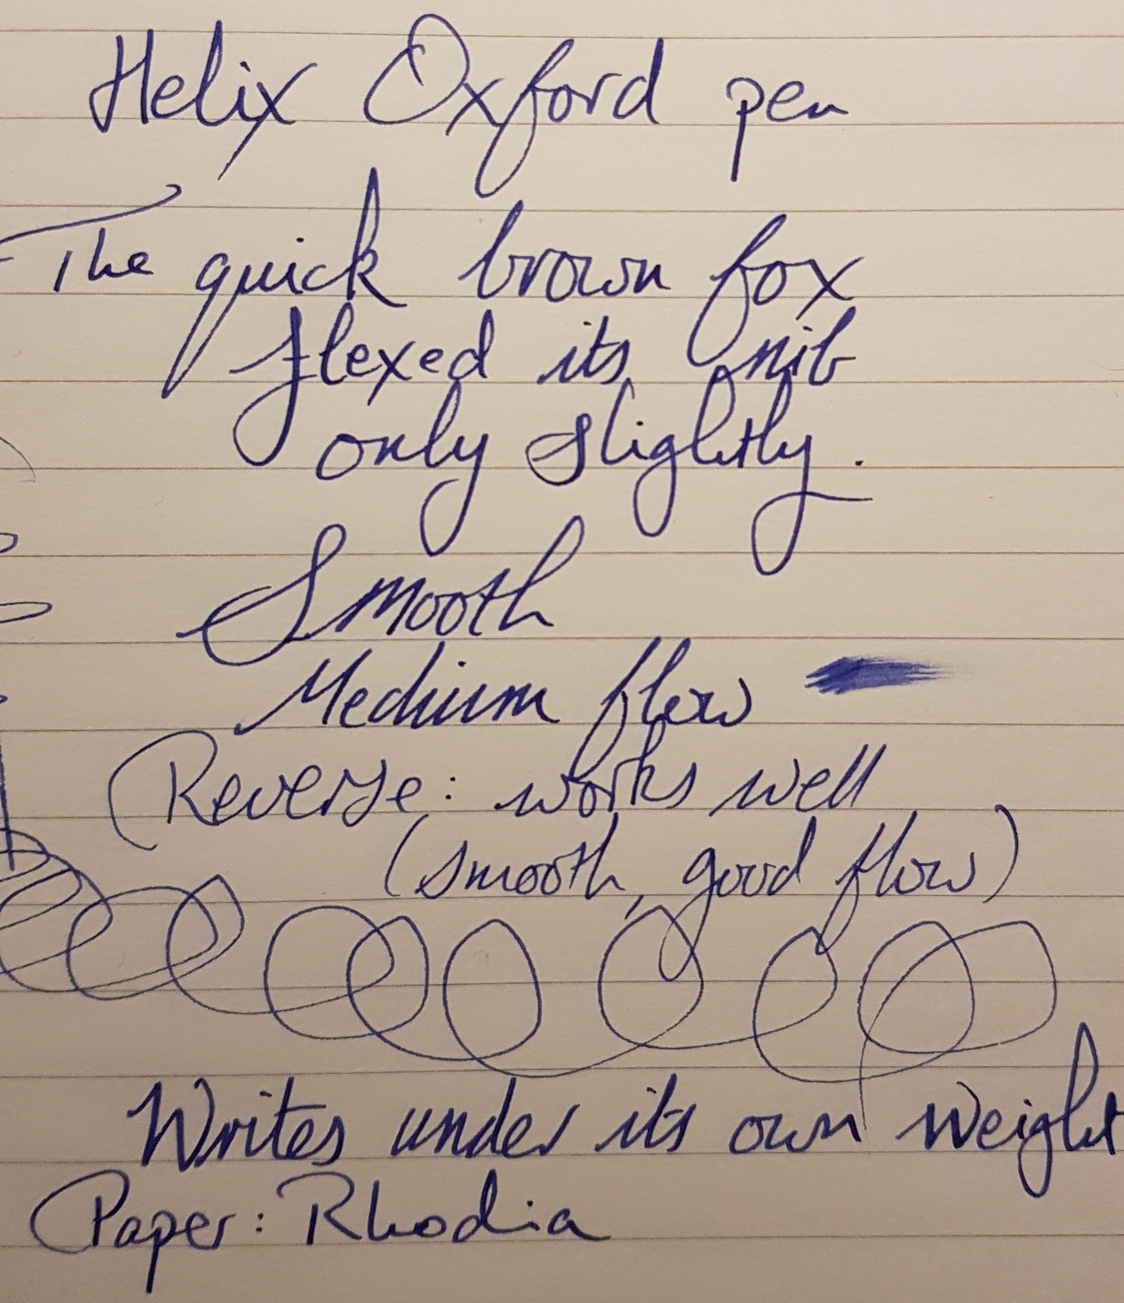 Helix Oxford pen
The quick brown fox
flexed its nib
only slightly.
Smooth
Medium flow
Reverse: works well
(smooth, good flow)
Writes under its own weight
Paper: Rhodia